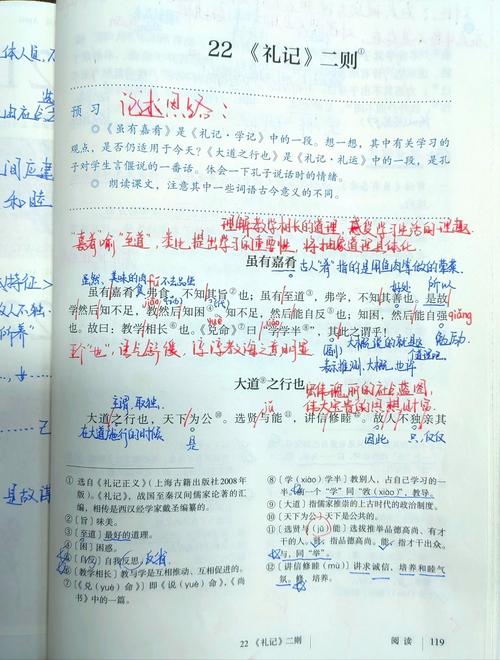 22 《礼记》二则①
预习 论述思路:
◎《虽有嘉肴》是《礼记·学记》中的一段。想一想,其中有关学习的
观点,是否仍适用于今天?《大道之行也》是《礼记·礼运》中的一段,是孔
子对学生言偃说的一番话。体会一下孔子说话时的情绪。
◎ 朗读课文,注意其中一些词语古今意义的不同。
理解教学相长的道理,感受学习生活的理趣
"嘉肴"喻"至道",类比提出学习的重要性,将抽象道理具体化
虽有嘉肴 古人"肴"指的是用鱼肉等做的荤菜
虽然 美味的肉 不去品尝 好处 所以
虽有嘉肴,弗食,不知其旨②也;虽有至道③,弗学,不知其善也。是故
jiào qiǎng
学然后知不足,教然后知困④。知不足,然后能自反⑤也;知困,然后能自强
也。故曰:教学相长⑥也。《兑命》⑦曰"学学半⑧",其此之谓乎!
勉励
大概说的就是
表示推测,大概,也许
大道⑨之行也
主谓,取独 jǔ
大道之行也,天下为公⑩。选贤与能⑪,讲信修睦⑫。故人不独亲其
在大道施行的时候 是 因此 只,仅仅
① 选自《礼记正义》(上海古籍出版社2008年
版)。《礼记》,战国至秦汉间儒家论著的汇
编,相传是西汉经学家戴圣编纂的。
②〔旨〕味美。
③〔至道〕最好的道理。
④〔困〕困惑。
⑤〔自反〕自我反思。反省
⑥〔教学相长〕教与学是互相推动、互相促进的。
⑦《兑(yuè)命》即《说(yuè)命》,《尚
书》中的一篇。
⑧〔学(xiào)学半〕教别人,占自己学习的一
半。第一个"学"同"敩(xiào)",教导。
⑨〔大道〕指儒家推崇的上古时代的政治制度。
⑩〔天下为公〕天下是公共的。
⑪〔选贤与(jǔ)能〕选拔推举品德高尚、有才
干的人。贤,指品德高尚。能,指才干出众。
与,同"举"。
⑫〔讲信修睦(mù)〕讲求诚信,培养和睦气
氛。修,培养。
22 《礼记》二则 阅读 119